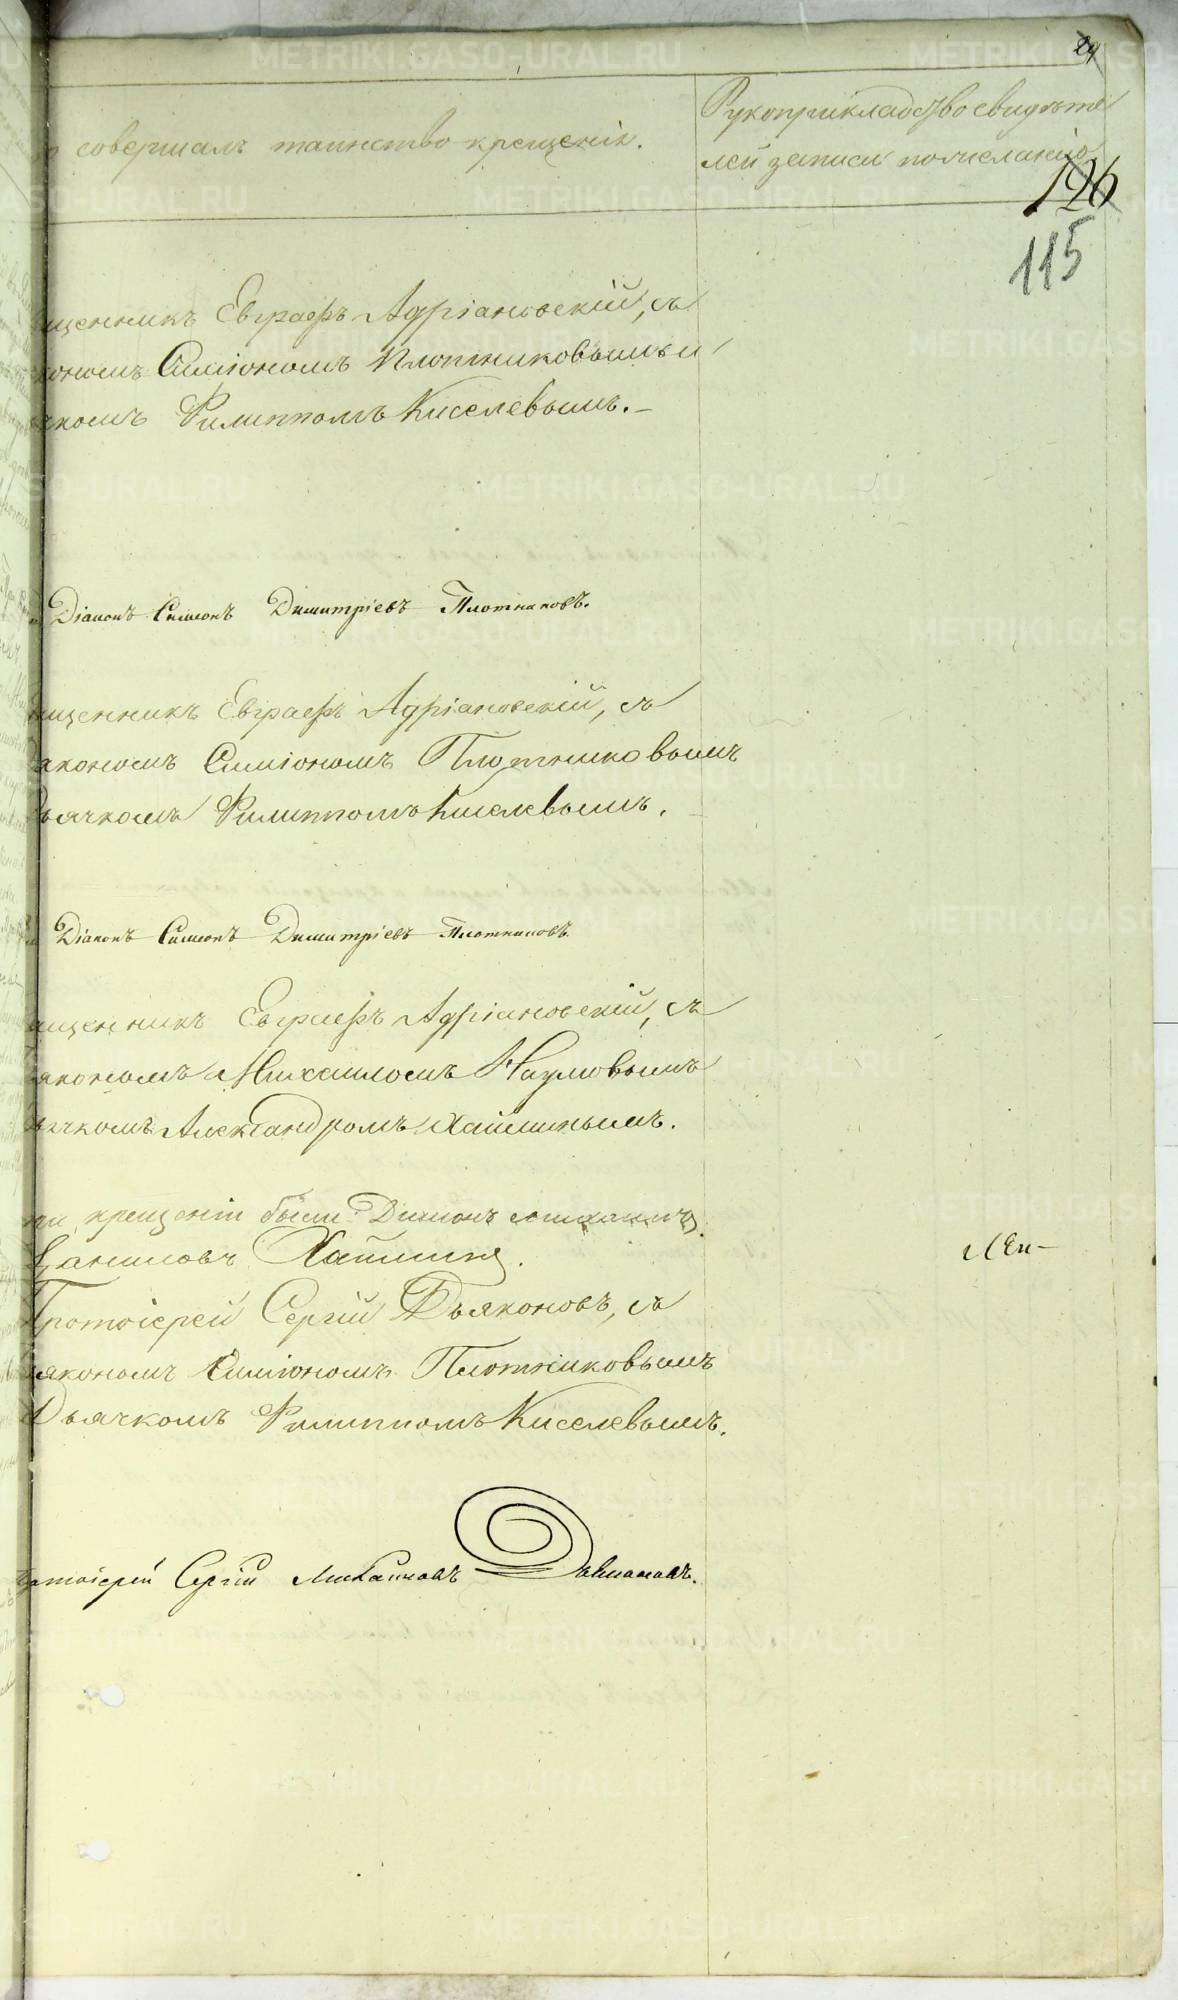 29
о совершалъ таинство крещенія.
Рукоприкладство свидѣте
лей записи по желанію.
126
115
щенникъ Евграфъ Адріановскій, съ
кономъ Симіономъ Плотниковымъ и
чкомъ Филиппомъ Киселевымъ.
Діаконъ Симеонъ Димитріевъ Плотниковъ.
щенникъ Евграфъ Адріановскій, съ
якономъ Симіономъ Плотниковымъ
ьячкомъ Филиппомъ Киселевымъ.
Діаконъ Симеонъ Димитріевъ Плотниковъ.
щенникъ Евграфъ Адріановскій, съ
якономъ Михаиломъ Наумовымъ
ячкомъ Александромъ Хайминымъ.
ри крещеніи были Диаконъ
Даниловъ
Протоіерей Сергій Дьяконовъ, съ
якономъ Симіономъ Плотниковымъ
Дьячкомъ Филиппомъ Киселевымъ.
ротоіерей Сергій Михаиловъ Дьяконовъ.
METRIKI.GASO-URAL.RU